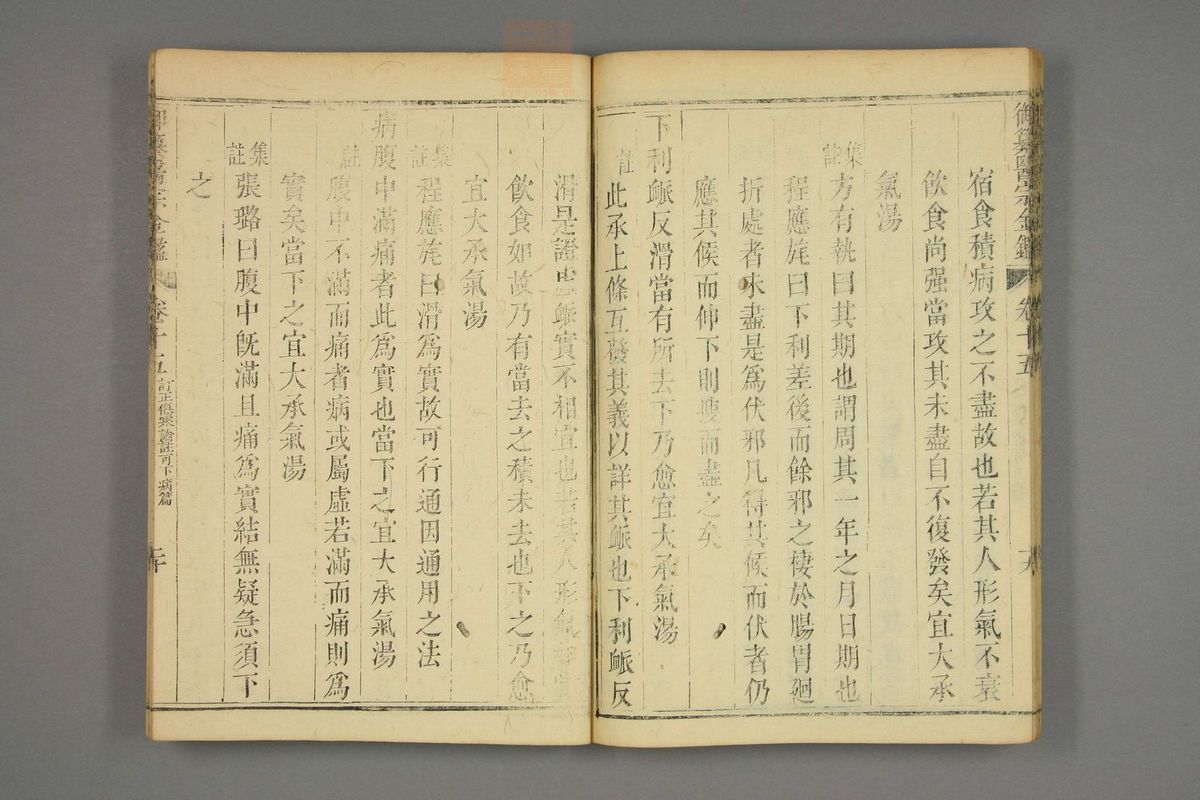 御纂醫宗金鑑 卷十五
宿食積病攻之不盡故也若其人形氣不衰
飲食尚强當攻其未盡自不復發矣宜大承
氣湯
集註 方有執曰其期也謂周其一年之月日期也
程應旄曰下利差後而餘邪之棲於腸胃廻
折處者未盡是爲伏邪凡得其候而伏者仍
應其候而伸下則搜而盡之矣
下利脈反滑當有所去下乃愈宜大承氣湯
註 此承上條互發其義以詳其脈也下利脈反
滑是證虛脈實不相宜也若其人形氣如常
飲食如故乃有當去之積未去也下之乃愈
宜大承氣湯
集註 程應旄曰滑爲實故可行通因通用之法
病腹中滿痛者此爲實也當下之宜大承氣湯
註 腹中不滿而痛者病或屬虛若滿而痛則爲
實矣當下之宜大承氣湯
集註 張璐曰腹中旣滿且痛爲實結無疑急須下
之
御纂醫宗金鑑 卷十五 訂正傷寒論註可下病篇